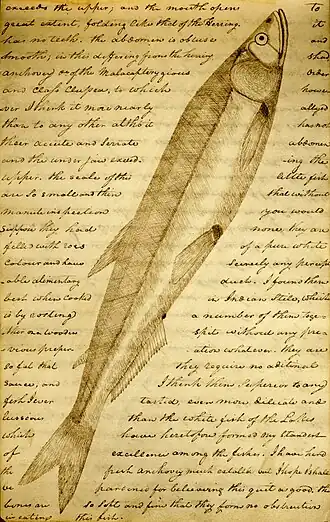 exceeds the upper, and the mouth opens to
great extent, folding like that of the Herring. it
has no teeth. the abdomen is obtuse and
smooth; in this differing from the herring shad
anchovey &c of the Malacapterygious Order
and Class Clupea, to which however
ver I think it more nearly allyed
than to any other altho' it has not
their accute and serrate abdomen
and the under jaw exceeding the
upper. the scales of this little fish
are so small and thin that without
manute inspection you would
suppose they had none. they are
filled with roes of a pure white
colour and have scercely any percept
able alementary duct. I found them
best when cooked in Indian stile, which
is by roasting a number of them toge
ther on a wooden spit without any pre
vious preperation whatever. they are
so fat that they require no aditional
sauce, and I think them superior to any
fish I ever tasted, even more delicate and
lussious than the white fish of the Lakes
which have heretofore formed my standart
of excellence among the fishes. I have heard
the fresh anchovey much extolled but I hope I shall
be pardoned for believing this quite as good. the
bones are so soft and fine that they form no obstruction
in eating this fish.